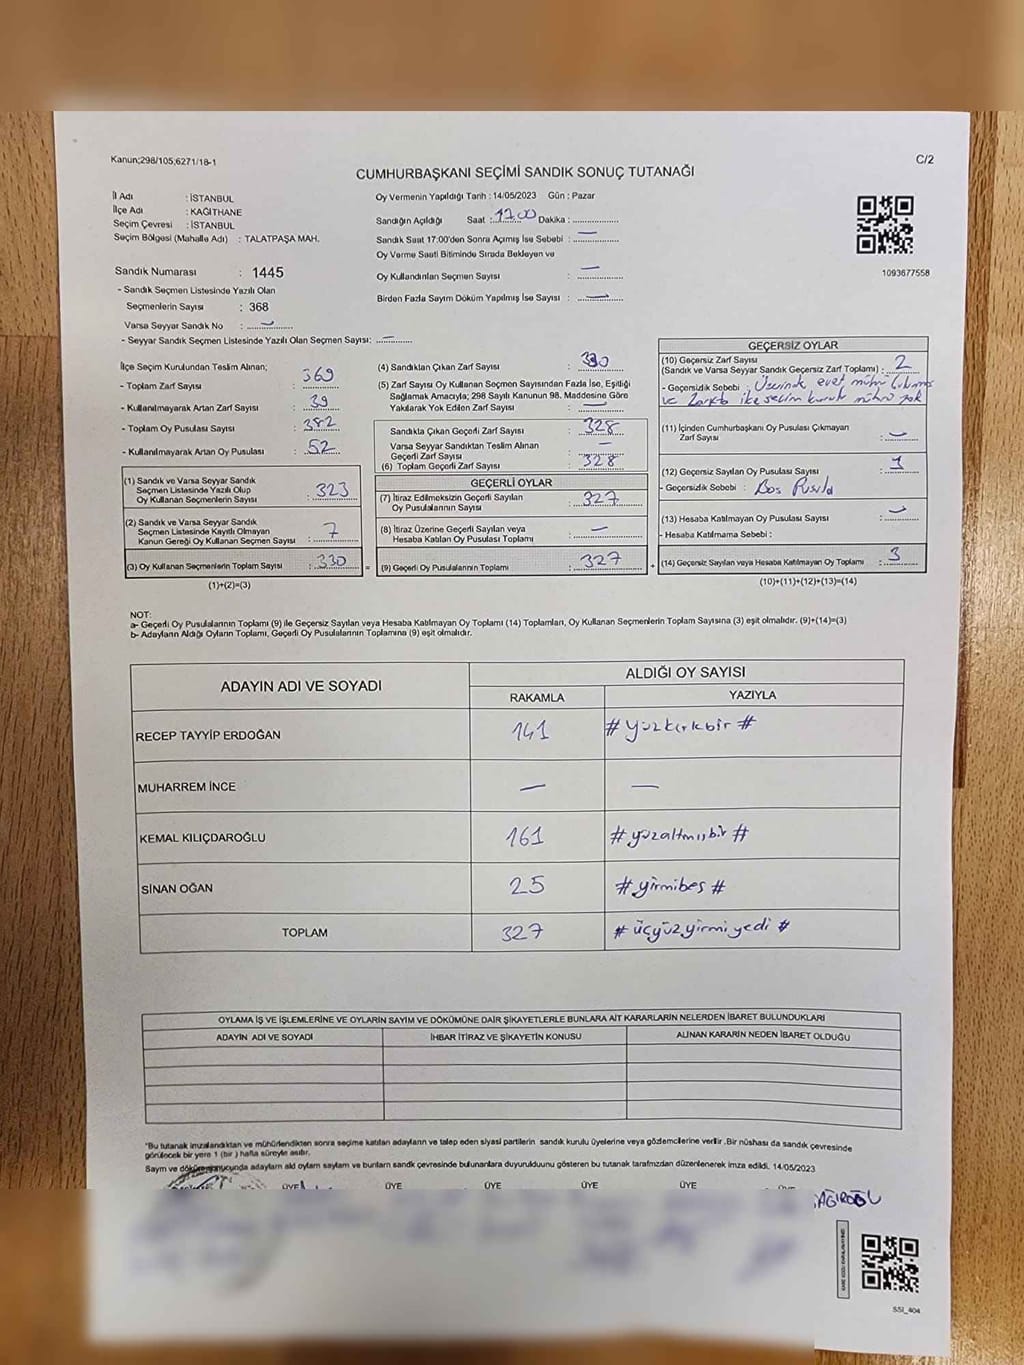 Kanun;298/105,6271/18-1
C/2
CUMHURBAŞKANI SEÇİMİ SANDIK SONUÇ TUTANAĞI
İl Adı : İSTANBUL
İlçe Adı : KAĞITHANE
Seçim Çevresi : İSTANBUL
Seçim Bölgesi (Mahalle Adı) : TALATPAŞA MAH.
Sandık Numarası : 1445
- Sandık Seçmen Listesinde Yazılı Olan
Seçmenlerin Sayısı : 368
Varsa Seyyar Sandık No : —
- Seyyar Sandık Seçmen Listesinde Yazılı Olan Seçmen Sayısı: —
Oy Vermenin Yapıldığı Tarih : 14/05/2023 Gün : Pazar
Sandığın Açıldığı Saat : 17.00 Dakika :
Sandık Saat 17:00'den Sonra Açımış İse Sebebi : —
Oy Verme Saati Bitiminde Sırada Bekleyen ve
Oy Kullandırılan Seçmen Sayısı : —
Birden Fazla Sayım Döküm Yapılmış İse Sayısı : —
1093677558
İlçe Seçim Kurulundan Teslim Alınan;
- Toplam Zarf Sayısı : 369
- Kullanılmayarak Artan Zarf Sayısı : 39
- Toplam Oy Pusulası Sayısı : 382
- Kullanılmayarak Artan Oy Pusulası : 52
(1) Sandık ve Varsa Seyyar Sandık
Seçmen Listesinde Yazılı Olup
Oy Kullanan Seçmenlerin Sayısı : 323
(2) Sandık ve Varsa Seyyar Sandık
Seçmen Listesinde Kayıtlı Olmayan
Kanun Gereği Oy Kullanan Seçmen Sayısı : 7
(3) Oy Kullanan Seçmenlerin Toplam Sayısı : 330
(1)+(2)=(3)
(4) Sandıktan Çıkan Zarf Sayısı : 330
(5) Zarf Sayısı Oy Kullanan Seçmen Sayısından Fazla İse, Eşitliği
Sağlamak Amacıyla; 298 Sayılı Kanunun 98. Maddesine Göre
Yakılarak Yok Edilen Zarf Sayısı : —
Sandıkta Çıkan Geçerli Zarf Sayısı : 328
Varsa Seyyar Sandıktan Teslim Alınan
Geçerli Zarf Sayısı : —
(6) Toplam Geçerli Zarf Sayısı : 328
GEÇERLİ OYLAR
(7) İtiraz Edilmeksizin Geçerli Sayılan
Oy Pusulalarının Sayısı : 327
(8) İtiraz Üzerine Geçerli Sayılan veya
Hesaba Katılan Oy Pusulası Toplamı : —
= (9) Geçerli Oy Pusulalarının Toplamı : 327
GEÇERSİZ OYLAR
(10) Geçersiz Zarf Sayısı
(Sandık ve Varsa Seyyar Sandık Geçersiz Zarf Toplamı) : 2
- Geçersizlik Sebebi : Üzerinde evet mührü
ve Zarfta ilçe seçim kurulu mührü yok
(11) İçinden Cumhurbaşkanı Oy Pusulası Çıkmayan
Zarf Sayısı : —
(12) Geçersiz Sayılan Oy Pusulası Sayısı : 1
- Geçersizlik Sebebi : Boş Pusula
(13) Hesaba Katılmayan Oy Pusulası Sayısı : —
- Hesaba Katılmama Sebebi :
+ (14) Geçersiz Sayılan veya Hesaba Katılmayan Oy Toplamı : 3
(10)+(11)+(12)+(13)=(14)
NOT:
a- Geçerli Oy Pusulalarının Toplamı (9) ile Geçersiz Sayılan veya Hesaba Katılmayan Oy Toplamı (14) Toplamları, Oy Kullanan Seçmenlerin Toplam Sayısına (3) eşit olmalıdır. (9)+(14)=(3)
b- Adayların Aldığı Oyların Toplamı, Geçerli Oy Pusulalarının Toplamına (9) eşit olmalıdır.
ADAYIN ADI VE SOYADI ALDIĞI OY SAYISI
RAKAMLA YAZIYLA
RECEP TAYYİP ERDOĞAN 141 #yüzkırkbir#
MUHARREM İNCE — —
KEMAL KILIÇDAROĞLU 161 #yüzaltmışbir#
SİNAN OĞAN 25 #yirmibeş#
TOPLAM 327 #üçyüzyirmiyedi#
OYLAMA İŞ VE İŞLEMLERİNE VE OYLARIN SAYIM VE DÖKÜMÜNE DAİR ŞİKAYETLERLE BUNLARA AİT KARARLARIN NELERDEN İBARET BULUNDUKLARI
ADAYIN ADI VE SOYADI İHBAR İTİRAZ VE ŞİKAYETİN KONUSU ALINAN KARARIN NEDEN İBARET OLDUĞU
*Bu tutanak imzalandıktan ve mühürlendikten sonra seçime katılan adayların ve talep eden siyasi partilerin sandık kurulu üyelerine veya gözlemcilerine verilir .Bir nüshası da sandık çevresinde
görülecek bir yere 1 (bir ) hafta süreyle asılır.
Sayım ve döküm sonucunda adayların aldı oyların sayıları ve bunların sandık çevresinde bulunanlara duyurulduunu gösteren bu tutanak tarafımızdan düzenlenerek imza edildi. 14/05/2023
ÜYE ÜYE ÜYE ÜYE ÜYE
SSI_404